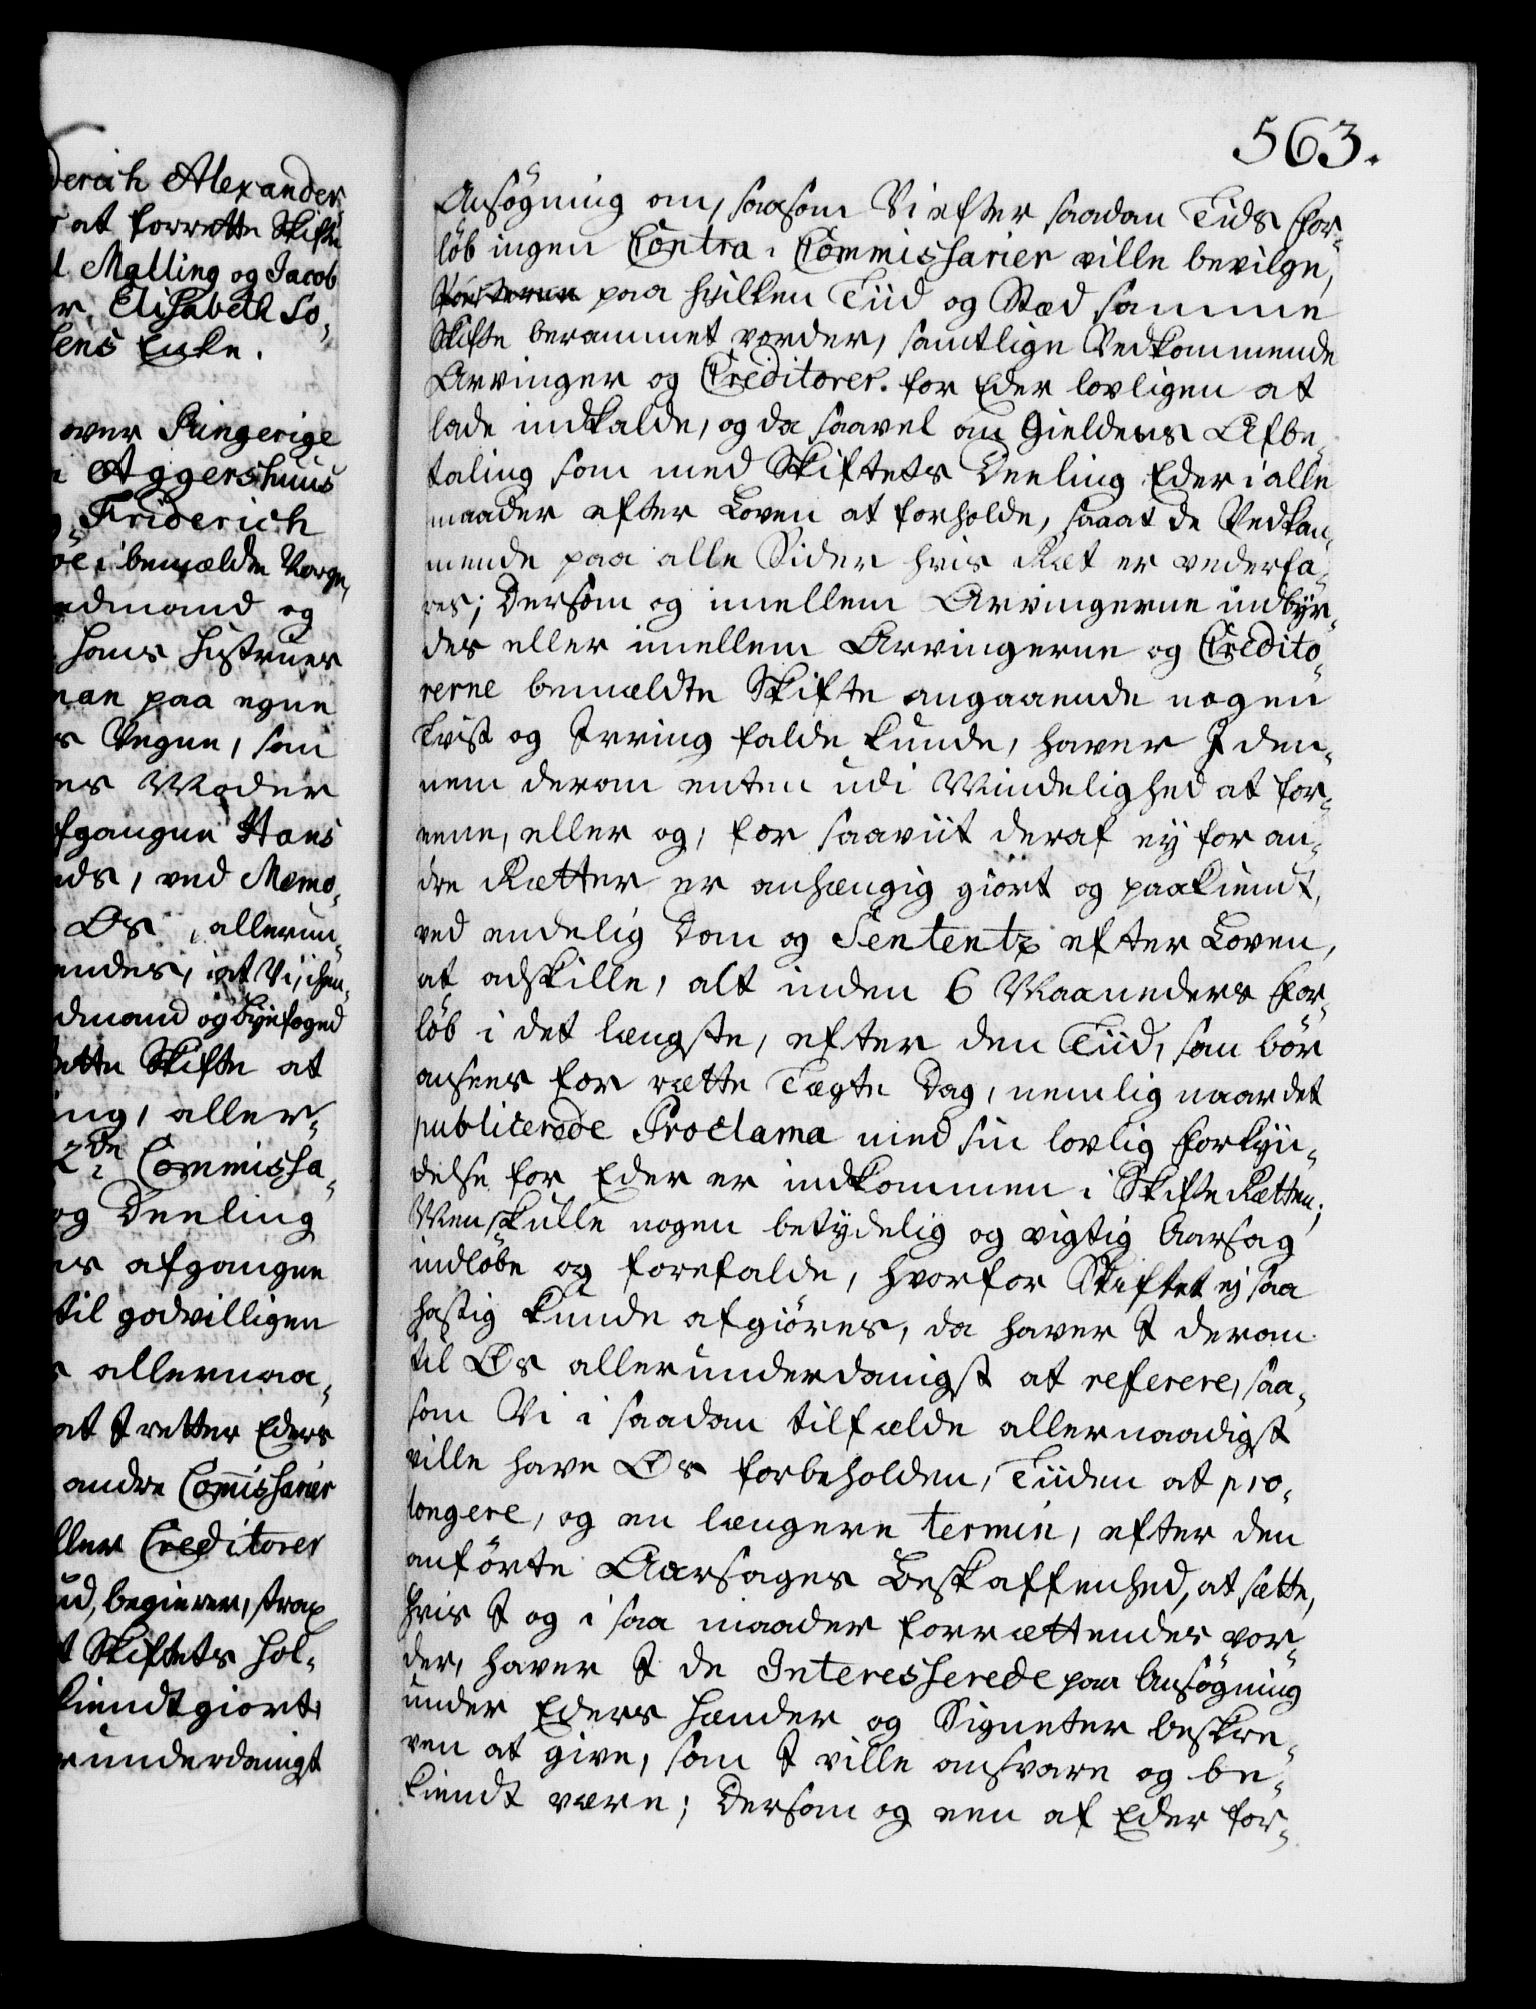 derich Alexander
at forrette Skifte
Malling og Jacob
Elisabeth So¬
lens Enke.
over Ringerige
Aggershuus
Friderich
i bemældte Norge¬
edmand og
hans Hustrues
paa egne
Vegne, som
es Moder
afgangne Hans
ved Memo¬
Os, allerun¬
endes, at Vi,
dmand og Byefoged
ette Skifte at
ing, aller¬
2de Commissa¬
og Deeling
es afgangne
til godvilligen
allernaa¬
at I retter Eders
andre Commissarier
ller Creditorer
ud, begierer, strax
Skiftets hol¬
kiendtgiort,
runderdanigst
563.
Ansøgning om, saasom Vi efter saadan Tids for¬
løb ingen Contra-Commissarier ville bevilge,
paa hvilken Tiid og Stæd samme
Skifte berammet vorder, samtlige Vedkommende
Arvinger og Creditorer for Eder lovligen at
lade indkalde, og da saavel om Gieldens Afbe¬
taling som med Skiftets Deeling Eder i alle
maader efter Loven at forholde, saaat de Vedkom¬
mende paa alle Sider hvis Ræt er vederfa¬
res; Dersom og imellem Arvingerne indbyr¬
des eller imellem Arvingerne og Credito¬
rerne bemældte Skifte angaaende nogen
tvist og Irring falde kunde, haver I den¬
nem derom enten udi Mindelighed at for¬
eene, eller og, for saaviit deraf ey for an¬
dre Rætter er anhængig giort og paakiendt,
ved endelig Dom og Sententz efter Loven,
at adskille, alt inden 6 Maaneders for¬
løb i det længste, efter den Tiid, som bør
ansees for rette Tægte Dag, nemlig naar det
publicerede Proclama med sin lovlig forkyn¬
delse for Eder er indkommen i Skifte Rætten;
Men skulle nogen betydelig og vigtig Aarsag
indløbe og forefalde, hvorfor Skiftet ej saa
hastig kunde afgiøres, da haver I derom
til Os allerunderdanigst at referere, saa¬
som Vi i saadan tilfælde allernaadigst
ville have Os forbeholden, Tiiden at pro¬
longere, og en længere termin, efter den
anførte Aarsages Beskaffenhed, at sætte,
hvis I og i saa maader forrættendes vor¬
der, haver I de Interesserede paa Ansøgning
under Eders Hænder og Signeter beskre¬
ven at give, som I ville ansvare og be¬
kiendt være; Dersom og een af Eder for¬